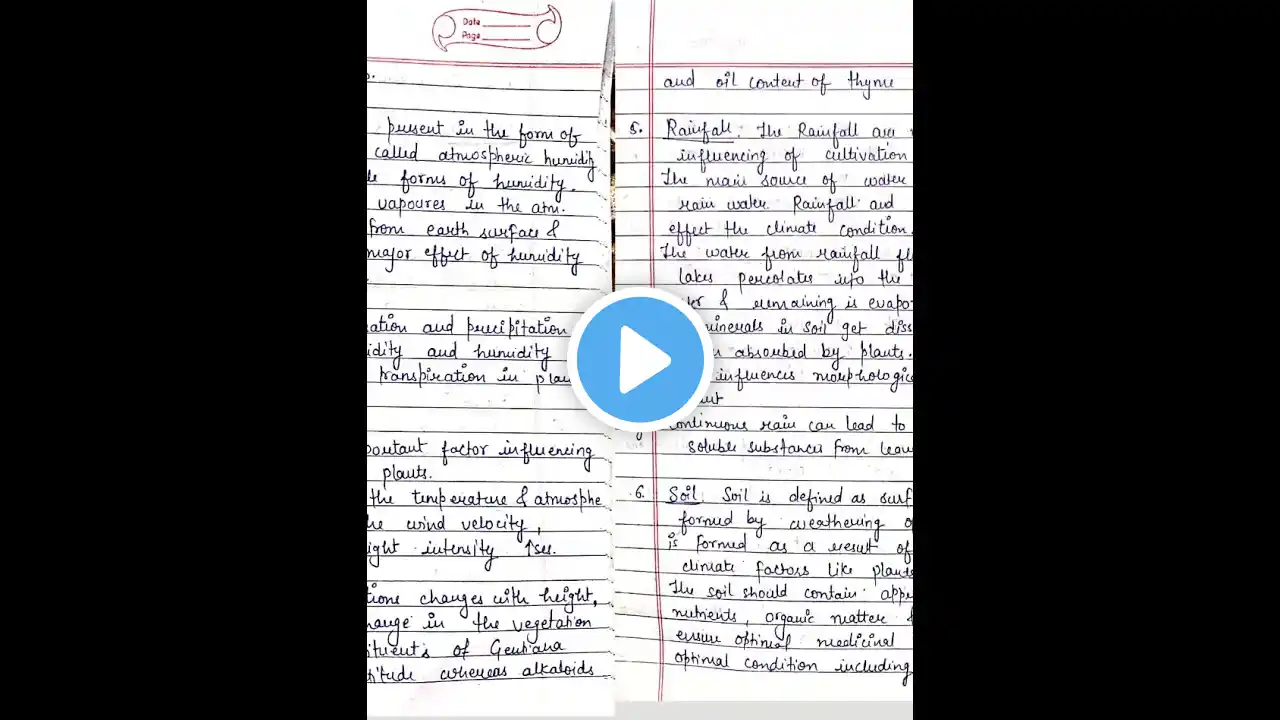 Date
Page
present in the form of
called atmospheric humidity
forms of humidity.
vapoures in the atm.
from earth surface &
major effect of humidity
ation and precipitation
idity and humidity
transpiration in plan
portant factor influencing
plants.
the temperature & atmosphe
he wind velocity,
ight intensity ↑ses.
tions changes with height,
hange in the vegetation
ituents of Gentiana
titude whereas alkaloids
and oil content of thyme
5. Rainfall: The Rainfall are
influencing of cultivation
The main source of water
rain water Rainfall and
effect the climate condition.
The water from rainfall fl
lakes percolates into the
& remaining is evapo
minerals in soil get diss
absorbed by plants.
influences morphologic
continuous rain can lead to
soluble substances from leav
6. Soil: Soil is defined as surf
formed by weathering o
is formed as a result of
climate factors like plants
The soil should contain appr
nutrients, organic matter &
ensure optimal medicinal
optimal condition including